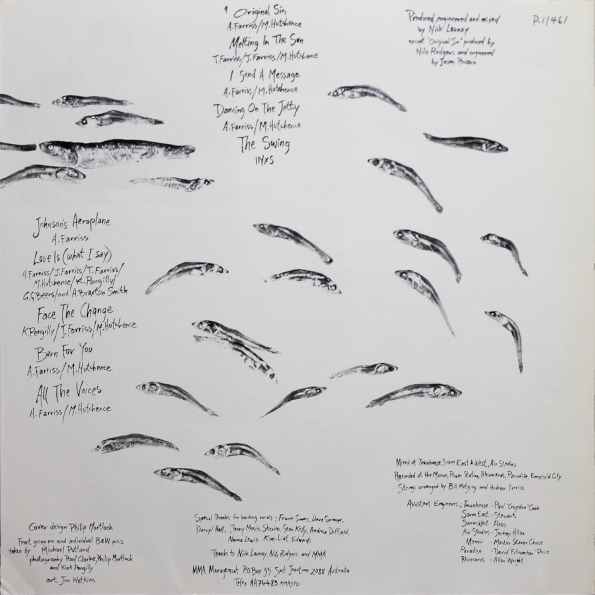 Original Sin
A.Farriss/M.Hutchence
Melting In The Sun
T.Farriss/J.Farriss/M.Hutchence
I Send A Message
A.Farriss/M.Hutchence
Dancing On The Jetty
A.Farriss/M.Hutchence
The Swing
INXS
Produced engineered and mixed
by Nick Launay
except "Original Sin" produced by
Nile Rodgers and engineered
by Jason
P.1/461
Johnson's Aeroplane
A.Farriss
Love Is (what I say)
A.Farriss/J.Farriss/T.Farriss/
M.Hutchence/K.Pengilly/
G.G.Beers/and A Braxton Smith
Face The Change
K Pengilly/J.Farriss/M.Hutchence
Burn For You
A.Farriss/M.Hutchence
All The Voices
A.Farriss/M.Hutchence
Mixed at Townhouse, Sarm East & West, Air Studios
Recorded at the Manor, Power Station, Rhinoceros, Paradise, Emerald City
Strings arranged by Bill and Andrew Farriss
Assistant Engineers; Townhouse - Paul 'Croydon' Cook
Sarm East - Stewart
Sarm West - Floss
Air Studios - Jeremy Allom
Manor - Master Steven Chase
Paradise - David Price
Rhinoceros - Allan Wright
Cover design Philip Mortlock
Front group pic and individual B&W pics
taken by Michael Putland
photography Paul Clarke, Philip Mortlock
and Kirk Pengilly
art: Jon Watkins
Special Thanks for backing vocals; Frank Simms, Dave Spinner,
Daryl Hall, Jenny Sherine, Sean Kelly, Andrew Duffield,
Nicona Lewis, Kim-Liat Edwards
Thanks to Nick Launay, Nile Rodgers and MMA
MMA Management P.O.Box 99 Spit Junction 2088 Australia
Tlx; AA74489